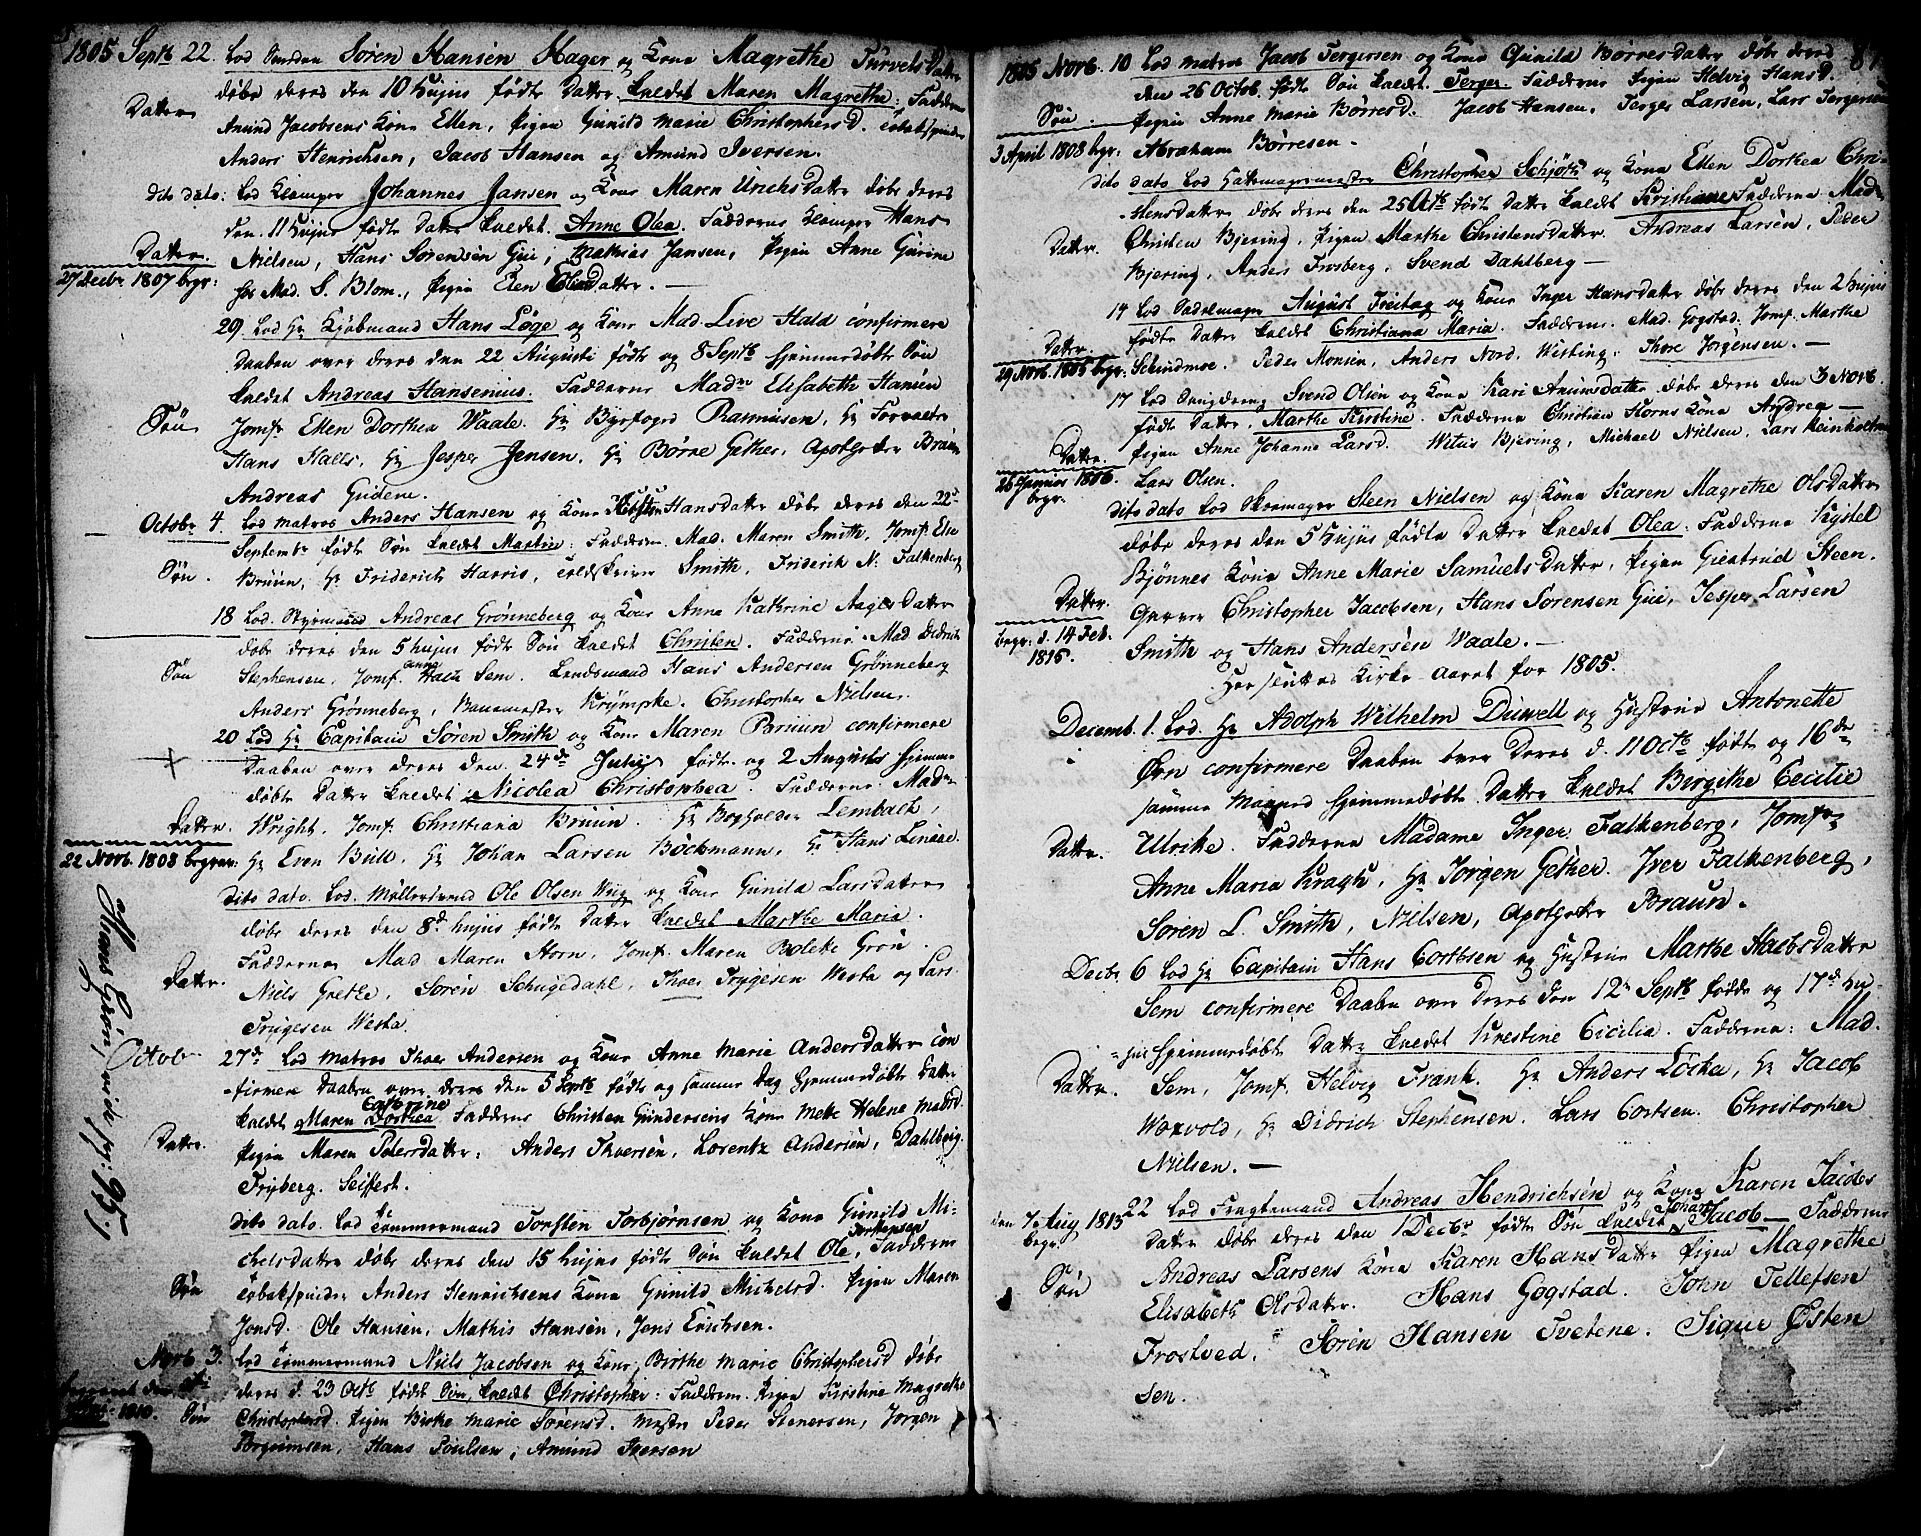 1805 Septb 22. Lod Søren Hansen Hager og Kone Magrethe TurvelsDatter
døbe deres den 10 hujus fødte Datter kaldet Maren Magrethe: Faddern
Datter Amund Jacobsens Kone Ellen, Pigen Gunild Marie Christophersd.
Anders Henrichsen, Jacob Hansen og Amund Iversen.
dito dato: Lod Klamper Johannes Jansen og Kone Maren UrichsDatter døbe deres
den 11 hujus fødte Datter kaldet Anne Olea. Fadderne Klamper Hans
Datter. Nielsen, Hans Sørensen Gui, Mathias Jansen, Pigen Anne Gurine
27 Decbr 1807 begr: hos Mad. S. Blom., Pigen Elen Datter. —
29. Lod Hr Kjøbmand Hans Løge og Kone Mad. Live Hald confirmere
Daaben over deres den 22 Augusti fødte og 8 Septb hjemmedøbte Søn
kaldet Andreas Hansenius. Fadderne Madm Elisabeth Hansen
Søn Jomf Ellen Dorthea Waale. Hr Byfoged Rasmusen, Hr Forvalter
Hans Halls, Hr Jesper Jensen, Hr Børre Gether, Apotheker Braun
Andreas Gudem.
Octobr 4. Lod matros Anders Hansen og Kone Kirstin Hansdatter døbe deres den 22
Septembr fødte Søn kaldet Martin: Faddern. Mad. Maren Smith, Jomf. Else
Søn. Bruun, Hr Friderich Harris, Smith, Friderik N. Falkenberg
18 Lod Styrmand Andreas Grønneberg og Kone Anne Kathrine AagesDatter
døbe deres den 5 hujus fødte Søn kaldet Christen. Fadderne Mad Didrich
Søn Stephensen, Jomf. anne Sem. Lensmand Hans Andersen Grønneberg
Anders Grønneberg, Krympke. Christopher Nielsen.
20 Lod Hr Capitain Søren Smith og Kone Maren Bruun confirmere
Daaben over deres den 24de July fødte og 2 Augusts hjemme
døbte Datter kaldet Nicolea Christophea. Fadderne Madm
Datter. Wright, Jomf. Christiana Bruun. Hr Bogholder Lembach,
22 Novb. 1808 begrav: Hr Even Bull, Hr Johan Larsen Bøckmann, Hr Hans Linaae.
dito dato. Lod. Møllersvend Ole Olsen Wiig og Kone Gunild Larsdatter
døbe deres den 8d hujus fødte Datter kaldet Marthe Maria.
Fadderne Mad Maren Horn, Jomf. Maren Bolette Grøn.
Datter. Niels Grethe, Søren Schugedahl, Thoer Trygesen Westa og Lars
Trugesen Westa.
Hans Grøn, vide pg: 95.
Octob 27d Lod matros Thoer Andersen og Kone Anne Marie Andersdatter con
firmere Daaben over deres den 5 Septb fødte og samme Dag hjemmedøbte Datter
Catherine
kaldet Maren Dorthea Fadderne Christen Gundersens Kone Mette Helene Madsd.
Datter. Pigen Maren PedersDatter: Anders Thoersen, Lorentz Andersen, Dahlberg.
Fryberg. Seifert.
dito dato. Lod Tømmermand Torsten Torbjørnsen og Kone Gunild Mi-
Torstensen
chelsdatter døbe deres den 15 hujus fødte Søn kaldet Ole, Faddern
Søn Anders Henrichsens Kone Gunild Michelsd. Pigen Maren
Jonsd. Ole Hansen, Mathis Hansen, Jens Erichsen.
Novb 3. Lod Tømmermand Niels Jacobsen og Kone Birthe Marie Christophersd døbe
deres d. 23 Octb fødte Søn kaldet Christopher: Faddern. Pigen Kirstine Magrethe
1810. Søn Christophersd. Pigen Birthe Marie Sørensd. Peder Stenersen, Jørgen
Torgrimsen, Hans Poulsen, Amund Iversen
1805 Novb. 10 Lod matros Jacob Tergersen og Kone Gunild BørresDatter døbe deres 87
den 26 Octob. fødte Søn kaldet Terger. Fadderne Pigen Helvig Hansd.
Søn. Pigen Anne Marie Børresd. Jacob Hansen, Terger Larsen, Lars Tergersen
3 April 1808 begr. Abraham Børresen.
dito dato Lod Hattemagermester Christopher Schjøth og Kone Ellen Dorthea Chri-
stensdatter døbe deres den 25 Octb fødte Datter kaldet Kristiane Fadderne Mad
Datter. Christen Bjering, Pigen Marthe Christensdatter. Andreas Larsen, Peder
Bjering, Anders Frosberg, Svend Dahlberg —
14 Lod Sadelmager August Freitag og Kone Inger Hansdatter døbe deres den 2 hujus
Datter. fødte Datter kaldet Christiana Maria. Fadderne. Mad. Gogstad. Jomf. Marthe
29 Novb. 1805 begr. Schindmoe. Peder Monsen, Anders Nord. Wisting. Thore Jørgensen. —
17 Lod Svend Olsen og Kone Kari AmunsDatter døbe deres den 3 Novb.
fødte Datter, Marthe Kirstine. Fadderne Christian Horns Kone Andrea
Datter. Pigen Anne Johanne Larsd. Witus Bjering, Michael Nielsen, Lars Reinholtsen
26 Januar 1806 begr. Lars Olsen.
dito dato Lod Skoemager Steen Nielsen og Kone Karen Magrethe OlsDatter
døbe deres den 5 hujus fødte Datter kaldet Olea: Fadderne Kystel
Bjønnes Kone Anne Marie SamuelsDatter, Pigen Giertrud Steen.
Datter. Garver Christopher Jacobsen, Hans Sørensen Gui, Jesper Larsen
begr. d. 14 Feb. 1815. Smith og Hans Andersen Waale. —
Her sluttes Kirke-Aaret for 1805.
Decemb. 1. Lod. Hr Adolph Wilhelm Duwell og Hustrue Antonette
Ørn confirmere Daaben over Deres d. 11 Octb fødte og 16de
samme Maaned hjemmedøbte Datter kaldet Birgithe Cecilie
Datter. Ulrike. Fadderne Madame Inger Falkenberg, Jomfr
Anne Maria Kragh, Hr Jørgen Gether. Iver Falkenberg,
Søren L. Smith, Nielsen, Apotheker Braun.
Decbr 6 Lod Hr Capitain Hans Cortsen og Hustrue Marthe JacobsDatter
Sem confirmere Daaben over Deres den 12te Septb fødde og 17d hu-
jus hjemmedøbte Datter kaldet Krestine Cicilia. Fadderne: Mad.
Datter. Sem, Jomf. Helvig Frank. Hr Anders Løcke, Hr Jacob
Woxvold, Hr Didrich Stephensen. Lars Cortsen. Christopher
Nielsen. —
den 7 Aug 1813 begr. 22 Lod Fragtemand Andreas Hendrichsen og Kone Karen Jacobs
Johan
Datter døbe deres den 1 Decbr fødte Søn kaldet Jacob — Fadderne
Søn Andreas Larsens Kone Karen HansDatter Pigen Magrethe
Elisabeth Olsdatter. Hans Gogstad. John Tellefsen
Frostved. Søren Hansen Tvetene. Sigur Østen
sen.